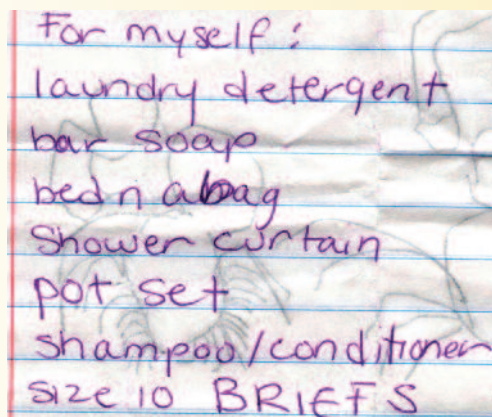 For myself:
laundry detergent
bar soap
bed n abag
Shower curtain
pot set
shampoo/conditioner
size 10 BRIEFS